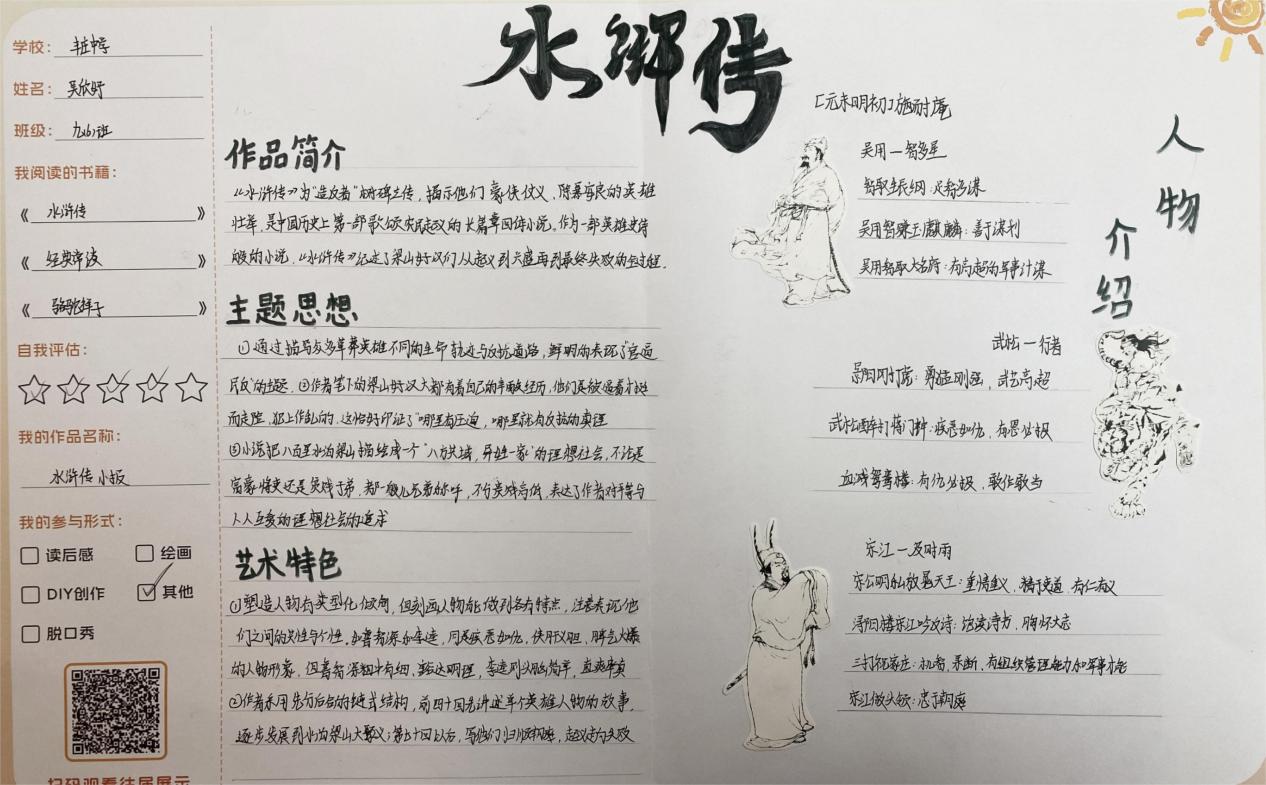 水浒传
[元末明初]施耐庵
学校：
姓名：吴欣妤
班级：九(6)班
我阅读的书籍：
《水浒传》
《经典常谈》
《骆驼祥子》
自我评估：
我的作品名称：
水浒传小报
我的参与形式：
读后感
绘画
DIY创作
其他
脱口秀
扫码观看往届展示
作品简介
《水浒传》为"造反者"树碑立传，揭示他们豪侠仗义、除暴安良的英雄
壮举，是中国历史上第一部歌颂农民起义的长篇章回体小说。作为一部英雄史诗
般的小说，《水浒传》记述了梁山好汉们从起义到兴盛再到最终失败的全过程。
主题思想
①通过描写众多草莽英雄不同的生命轨迹与反抗道路，鲜明的表现了"官逼
民反"的主题。②作者笔下的梁山好汉大都有着自己的辛酸经历，他们是被逼着才铤
而走险、犯上作乱的。这恰好印证了"哪里有压迫，哪里就有反抗的真理
③小说把八百里水泊梁山描绘成一个"八方共域，异姓一家"的理想社会，不论是
富豪将吏还是贫贱子弟，都一般儿兄弟称呼，不分贵贱高低，表达了作者对平等与
人人互爱的理想社会的追求
艺术特色
①塑造人物有类型化倾向，但刻画人物能做到各有特点，注意表现他
们之间的共性与个性。如鲁智深和李逵，同是疾恶如仇、侠肝义胆、脾气火爆
的人物形象，但鲁智深粗中有细、豁达明理，李逵则头脑简单、直爽率真
②作者采用先分后合的链式结构，前四十回先讲述单个英雄人物的故事，
逐步发展到水泊梁山大聚义；第七十回以后，写他们归顺朝廷，起义走向失败
人物介绍
吴用一智多星
智取生辰纲：足智多谋
吴用智赚玉麒麟：善于谋利
吴用智取大名府：有高超的军事计谋
武松一行者
景阳冈打虎：勇猛刚强，武艺高超
武松醉打蒋门神：疾恶如仇，有恩必报
血溅鸳鸯楼：有仇必报，敢作敢当
宋江一及时雨
宋公明私放晁天王：重情重义、有仁有义
浔阳楼宋江吟反诗：饱读诗书、胸怀大志
三打祝家庄：机智、果断，有组织管理能力和军事才能
宋江做头领：忠于朝廷